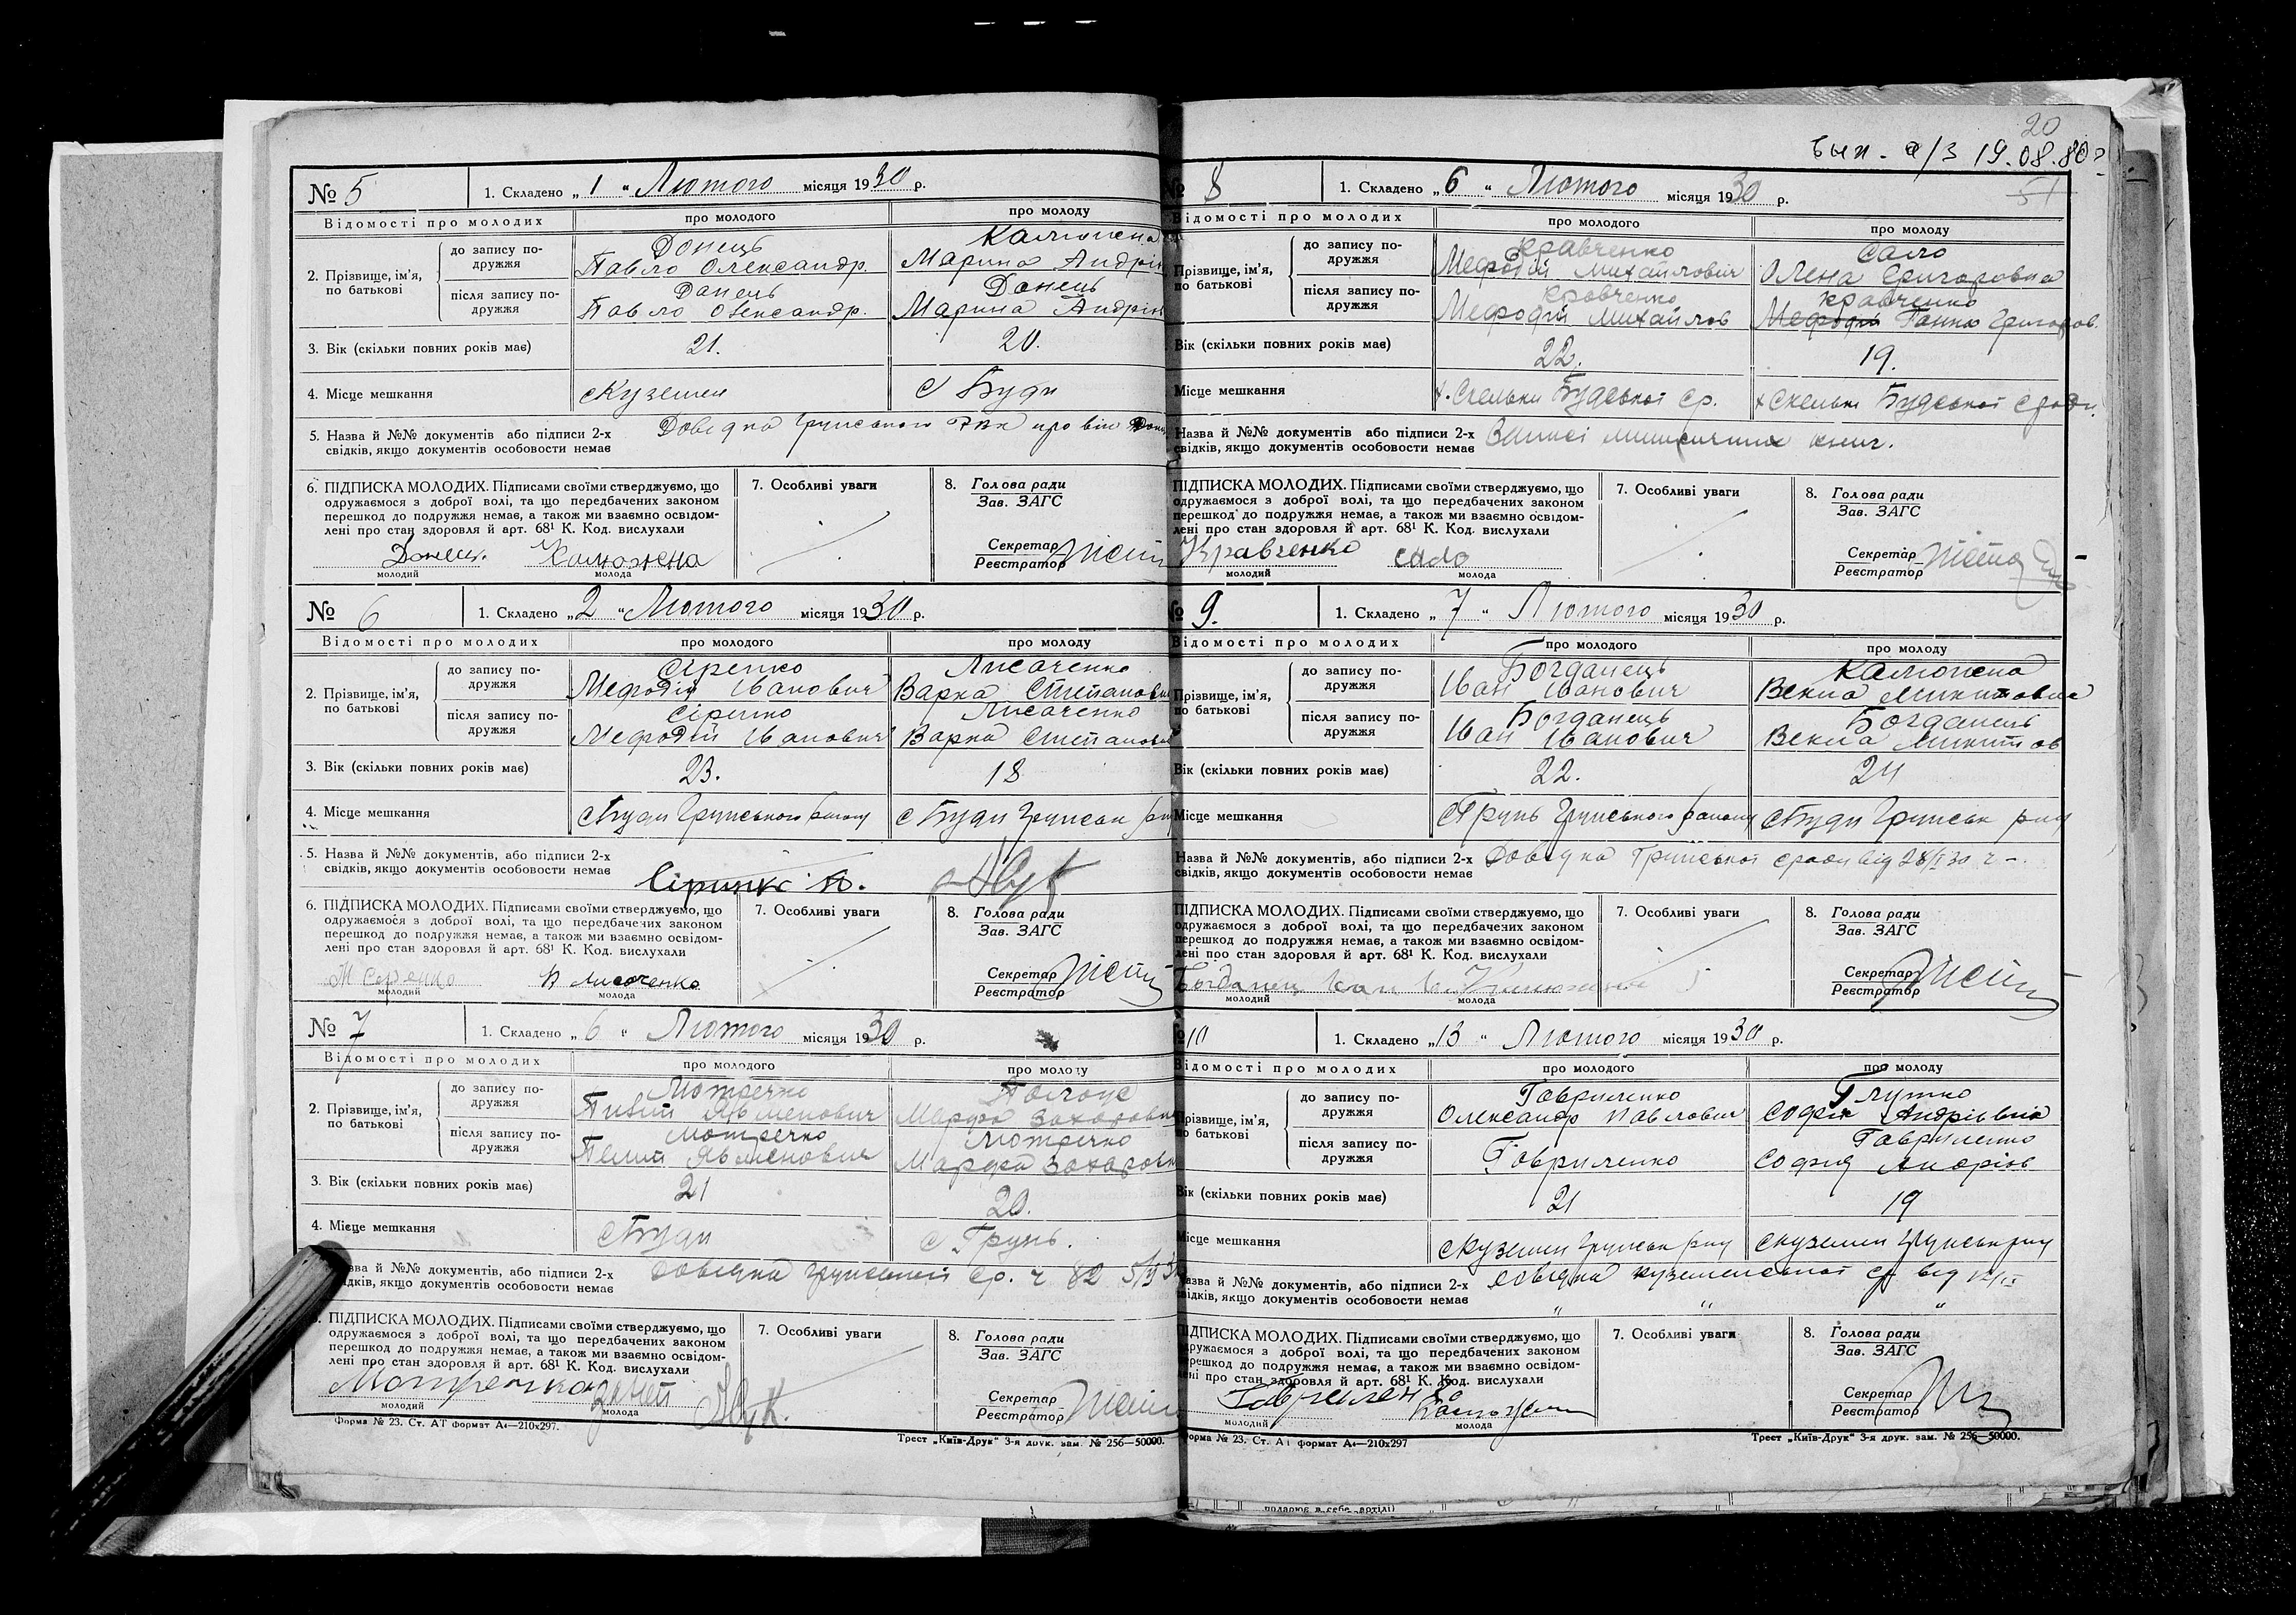 20
вып. а/з 19.08.80
51
№ 5
1. Складено „ 1 “ Лютого місяця 1930 р.
Відомості про молодих
про молодого
про молоду
2. Прізвище, ім'я, по батькові
до запису подружжя
Донець
Павло Олександр.
Калюжна
Марина Андрії
після запису подружжя
Донець
Павло Олександр.
Донець
Марина Андрії
3. Вік (скільки повних років має)
21.
20.
4. Місце мешкання
с Куземен
с Буди
5. Назва й №№ документів або підписи 2-х
свідків, якщо документів особовости немає
Довідка Грунського РВК про вік
6. ПІДПИСКА МОЛОДИХ. Підписами своїми стверджуємо, що
одружаємося з доброї волі, та що передбачених законом
перешкод до подружжя немає, а також ми взаємно освідом-
лені про стан здоровля й арт. 68¹ К. Код. вислухали
Донец.
молодий
Калюжна
молода
7. Особливі уваги
8. Голова ради
Зав. ЗАГС
Секретар
Реєстратор
№ 6
1. Складено „ 2 “ Лютого місяця 1930 р.
Відомості про молодих
про молодого
про молоду
2. Прізвище, ім'я, по батькові
до запису подружжя
Сіренко
Мефодій Іванович
Лисаченко
Варка Степановн
після запису подружжя
Сіренко
Мефодій Іванович
Лисаченко
Варка Степанов
3. Вік (скільки повних років має)
23.
18
4. Місце мешкання
с Буди Грунського району
с Буди Грунськ рну
5. Назва й №№ документів, або підписи 2-х
свідків, якщо документів особовости немає
6. ПІДПИСКА МОЛОДИХ. Підписами своїми стверджуємо, що
одружаємося з доброї волі, та що передбачених законом
перешкод до подружжя немає, а також ми взаємно освідом-
лені про стан здоровля й арт. 68¹ К. Код. вислухали
М Серенко
молодий
В Лисоченко
молода
7. Особливі уваги
8. Голова ради
Зав. ЗАГС
Секретар
Реєстратор
№ 7
1. Складено „ 6 “ Лютого місяця 1930 р.
Відомості про молодих
про молодого
про молоду
2. Прізвище, ім'я, по батькові
до запису подружжя
Мотречко
Марфа Захаровна
після запису подружжя
Мотречко
Мотречко
Марфа Захаровн
3. Вік (скільки повних років має)
21
20.
4. Місце мешкання
с Буди
с Грунь.
Назва й №№ документів, або підписи 2-х
свідків, якщо документів особовости немає
Довідка Грунської ср. ч 82 5/II 3
ПІДПИСКА МОЛОДИХ. Підписами своїми стверджуємо, що
одружаємося з доброї волі, та що передбачених законом
перешкод до подружжя немає, а також ми взаємно освідом-
лені про стан здоровля й арт. 68¹ К. Код. вислухали
Мотречко
молодий
молода
7. Особливі уваги
8. Голова ради
Зав. ЗАГС
Секретар
Реєстратор
Форма № 23. Ст. АТ формат А₄—210х297.
Трест „Київ-Друк“ 3-я друк. зам. № 256—50000.
№ 8
1. Складено „ 6 “ Лютого місяця 1930 р.
Відомості про молодих
про молодого
про молоду
Прізвище, ім'я, по батькові
до запису подружжя
Кравченко
Мефодій Михайлович
Сало
Олена Григоровна
після запису подружжя
Кравченко
Мефодій Михайлов
Кравченко
Мефодій Ганна Григоров.
Вік (скільки повних років має)
22.
19.
Місце мешкання
х. Скельки Будської ср.
х Скельки Будської сради.
Назва й №№ документів або підписи 2-х
свідків, якщо документів особовости немає
Записі книг.
ПІДПИСКА МОЛОДИХ. Підписами своїми стверджуємо, що
одружаємося з доброї волі, та що передбачених законом
перешкод до подружжя немає, а також ми взаємно освідом-
лені про стан здоровля й арт. 68¹ К. Код. вислухали
Кравченко
молодий
сало
молода
7. Особливі уваги
8. Голова ради
Зав. ЗАГС
Секретар
Реєстратор
№ 9.
1. Складено „ 7 “ Лютого місяця 1930 р.
Відомості про молодих
про молодого
про молоду
Прізвище, ім'я, по батькові
до запису подружжя
Богданець
Іван Іванович
Калюжна
Векла Микитовна
після запису подружжя
Богданець
Іван Іванович
Богданець
Векла Микитов
Вік (скільки повних років має)
22.
24
Місце мешкання
с Грунь Грунського району
с Буди Грунськ рну
Назва й №№ документів, або підписи 2-х
свідків, якщо документів особовости немає
Довідка Грунської сради від 28/I 30 ч –
ПІДПИСКА МОЛОДИХ. Підписами своїми стверджуємо, що
одружаємося з доброї волі, та що передбачених законом
перешкод до подружжя немає, а також ми взаємно освідом-
лені про стан здоровля й арт. 68¹ К. Код. вислухали
Богданец
молодий
молода
7. Особливі уваги
8. Голова ради
Зав. ЗАГС
Секретар
Реєстратор
№ 10
1. Складено „ 13 “ Лютого місяця 1930 р.
Відомості про молодих
про молодого
про молоду
Прізвище, ім'я, по батькові
до запису подружжя
Гавриленко
Олександр Павлович
Глушко
Софія Андріївна
після запису подружжя
Гавриленко
Гавриленко
Софія Андріїв
Вік (скільки повних років має)
21
19
Місце мешкання
с Куземен Грунськ рну
с Куземен Грунськ рну
Назва й №№ документів, або підписи 2-х
свідків, якщо документів особовости немає
Довідка Куземенської ср від
" " "
ПІДПИСКА МОЛОДИХ. Підписами своїми стверджуємо, що
одружаємося з доброї волі, та що передбачених законом
перешкод до подружжя немає, а також ми взаємно освідом-
лені про стан здоровля й арт. 68¹ К. Код. вислухали
Гавриленко
молодий
молода
7. Особливі уваги
8. Голова ради
Зав. ЗАГС
Секретар
Реєстратор
Форма № 23. Ст. АТ формат А₄—210х297
Трест „Київ-Друк“ 3-я друк. зам. № 256—50000.